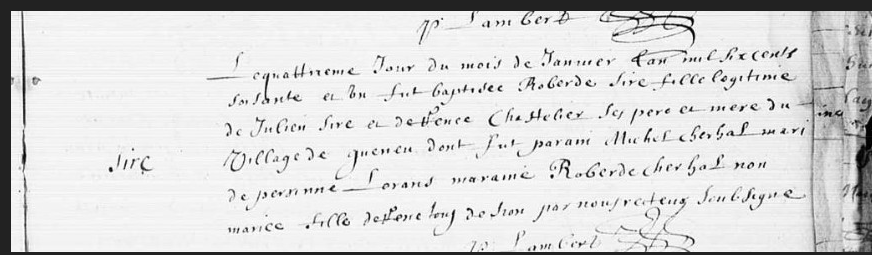 P Lambert
Le quattrieme Jour du mois de Janvier Lan mil six cents
soisante et un fut baptisee Roberde sire fille legitime
de Julien sire et de Chastelier ses pere et mere du
sire
Village de dont fut parain Michel Cherhal mari
de perinne Lorans maraine Roberde Cherhal non
mariee fille de tous de sion par nous recteur soubsigne
P Lambert